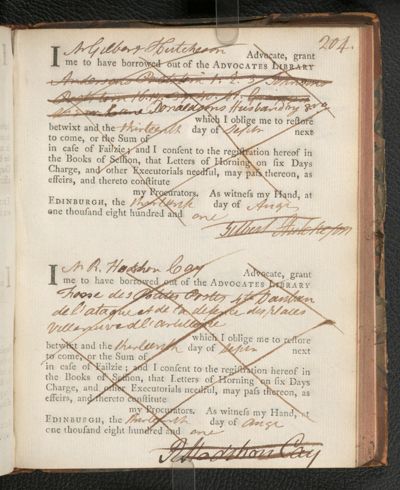 204.
I Mr Gilbert Hutcheson Advocate, grant
me to have borrowed out of the ADVOCATES LIBRARY
Donaldsons Husbandry 800
which I oblige me to restore
betwixt and the thirteenth day of Septr next
to come, or the Sum of
in case of Failzie; and I consent to the registration hereof in
the Books of Session, that Letters of Horning on six Days
Charge, and other Executorials needful, may pass thereon, as
effeirs, and thereto constitute
my Procurators. As witness my Hand, at
EDINBURGH, the thirteenth day of Augt
one thousand eight hundred and one
Gilbert Hutcheson
I Mr R. Hodshon Cay Advocate, grant
me to have borrowed out of the ADVOCATES LIBRARY
fosse des Places fortes
de l'ataque et de la defense des Places
l'artillerie
which I oblige me to restore
betwixt and the thirteenth day of Septr next
to come, or the Sum of
in case of Failzie; and I consent to the registration hereof in
the Books of Session, that Letters of Horning on six Days
Charge, and other Executorials needful, may pass thereon, as
effeirs, and thereto constitute
my Procurators. As witness my Hand, at
EDINBURGH, the thirteenth day of Augt
one thousand eight hundred and one
R Hodshon Cay